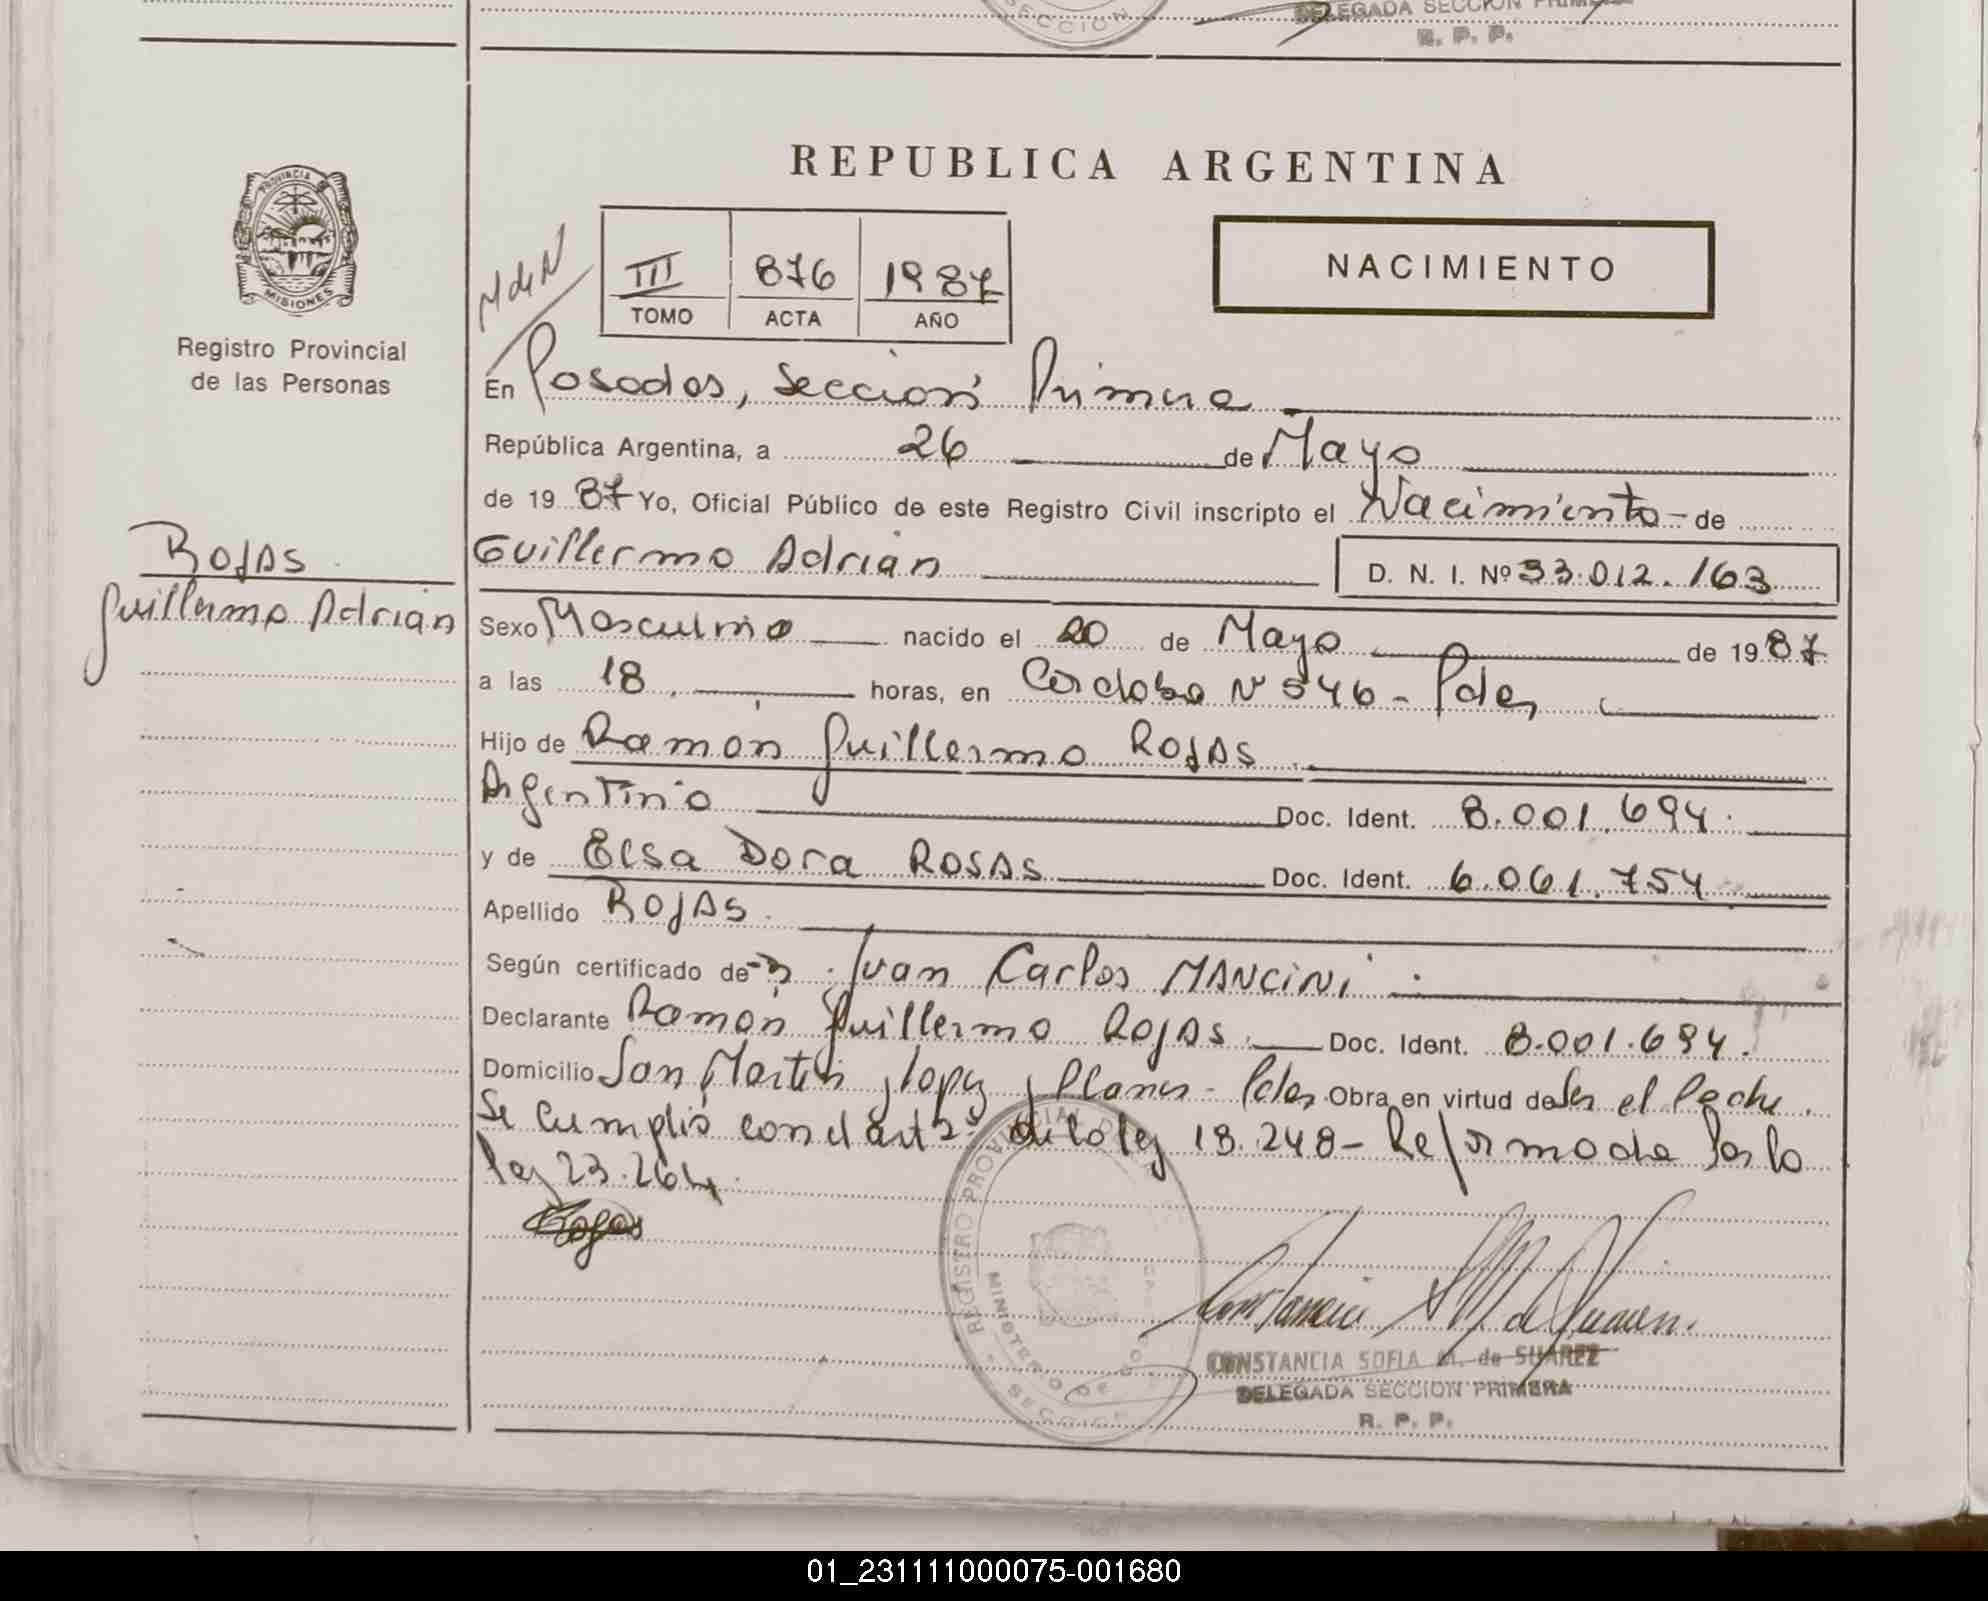 SECCION
DELEGADA SECCION PRIMERA
R. P. P.
REPUBLICA ARGENTINA
PROVINCIA DE
MISIONES
Registro Provincial
de las Personas
M de N
III 876 1987
TOMO ACTA AÑO
NACIMIENTO
En Posadas, Sección Primera
República Argentina, a 26 de Mayo
de 1987 Yo, Oficial Público de este Registro Civil inscripto el Nacimiento de
ROJAS
Guillermo Adrián
Guillermo Adrián D. N. I. Nº 33.012.163
Sexo Masculino nacido el 20 de Mayo de 1987
a las 18 horas, en Cordoba Nº 546 - Pdas
Hijo de Ramón Guillermo ROJAS
Argentino Doc. Ident. 8.001.694.
y de Elsa Dora ROSAS Doc. Ident. 6.061.754
Apellido ROJAS.
Según certificado de Juan Carlos MANCINI
Declarante Ramón Guillermo ROJAS Doc. Ident. 8.001.694.
Domicilio San Martin y Lopez y Planes - Pdas Obra en virtud de Ser el Padre.
Se cumplió con el art 2º de la ley 18.248 - Reformada Por la
ley 23.264
Rojas
REGISTRO PROVINCIAL DE
MINISTERIO DE GOB
SECCION
CONSTANCIA SOFIA M. de SUAREZ
DELEGADA SECCION PRIMERA
R. P. P.
01_231111000075-001680